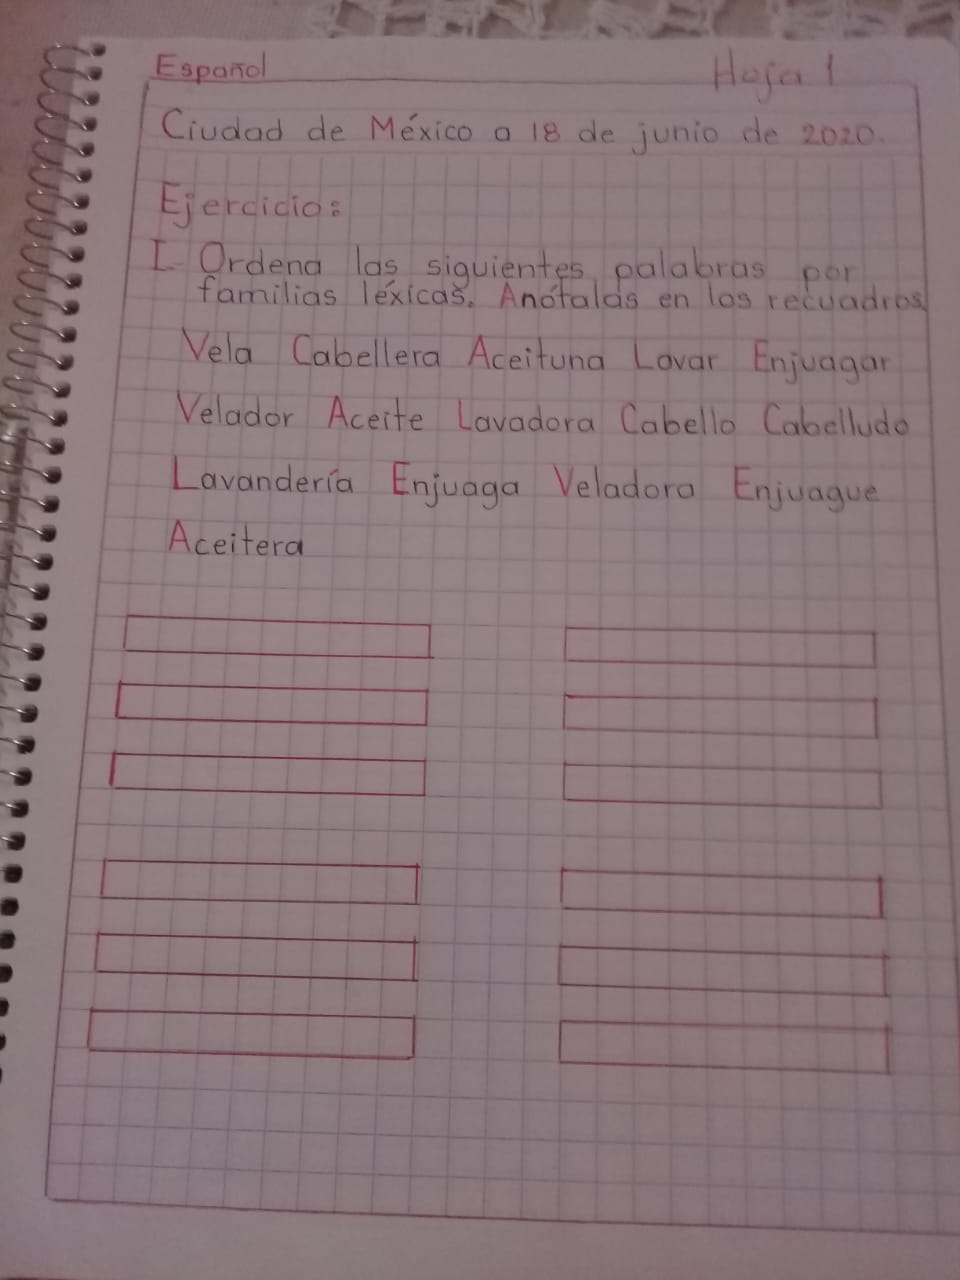 Español
Hoja 1
Ciudad de México a 18 de junio de 2020.
Ejercicio:
I. Ordena las siguientes palabras por
familias léxicas. Anótalas en los recuadros
Vela Cabellera Aceituna Lavar Enjuagar
Velador Aceite Lavadora Cabello Cabelludo
Lavandería Enjuaga Veladora Enjuague
Aceitera